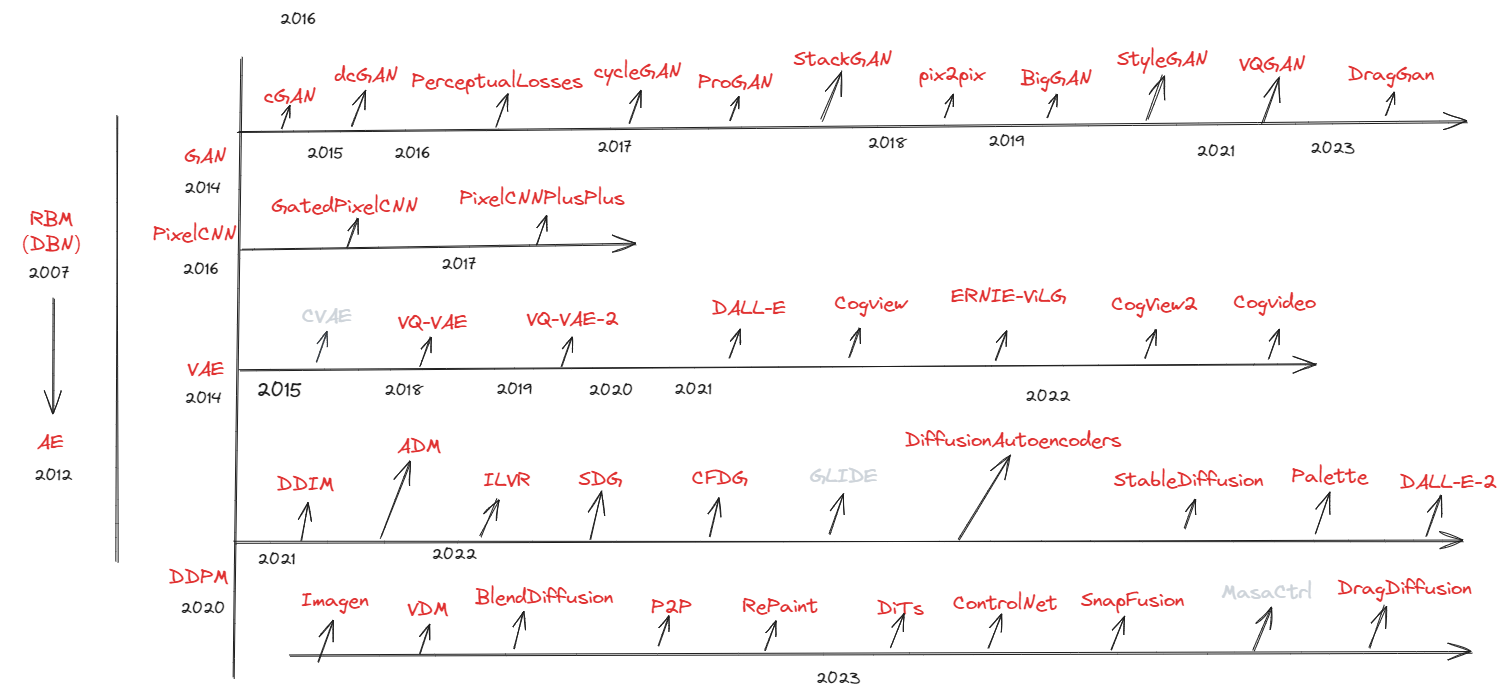 2016
cGAN
dcGAN
PerceptualLosses
cycleGAN
ProGAN
StackGAN
pix2pix
BigGAN
StyleGAN
VQGAN
DragGan
GAN
2014
2015
2016
2017
2018
2019
2021
2023
RBM
(DBN)
2007
AE
2012
PixelCNN
2016
GatedPixelCNN
PixelCNNPlusPlus
2017
VAE
2014
CVAE
VQ-VAE
VQ-VAE-2
DALL-E
Cogview
ERNIE-ViLG
CogView2
Cogvideo
2015
2018
2019
2020
2021
2022
DDIM
ADM
ILVR
SDG
CFDG
GLIDE
DiffusionAutoencoders
StableDiffusion
Palette
DALL-E-2
2021
2022
DDPM
2020
Imagen
VDM
BlendDiffusion
P2P
RePaint
DiTs
ControlNet
SnapFusion
MasaCtrl
DragDiffusion
2023